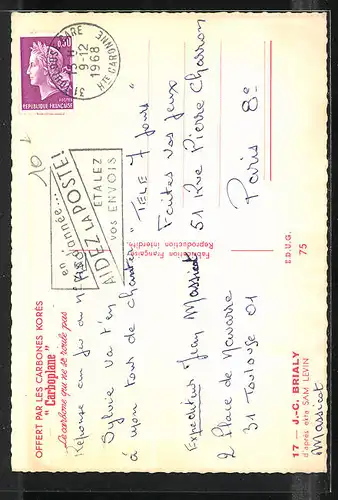 OFFERT PAR LES CARBONES KORÈS
" Carboplane "
Le carbone qui ne se roule pas
Réponse au jeu du n°
Sylvie va t'en
à mon tour de chanter
Expéditeur Jean Massicot
2 Place de Navarre
31 Toulouse 01
17 — J.-C. BRIALY
d'après cliché SAM LEVIN
Massicot
Fabrication Française
Reproduction interdite.
E.D.U.G.
75
en janvier...
AIDEZ LA POSTE!
ÉTALEZ
vos ENVOIS
31 GARE
15 H
9-12
1968
HTE GARONNE
0,30
RÉPUBLIQUE FRANÇAISE
10
"TELE 7 Jours"
Faites vos Jeux
51 Rue Pierre Charron
Paris 8e